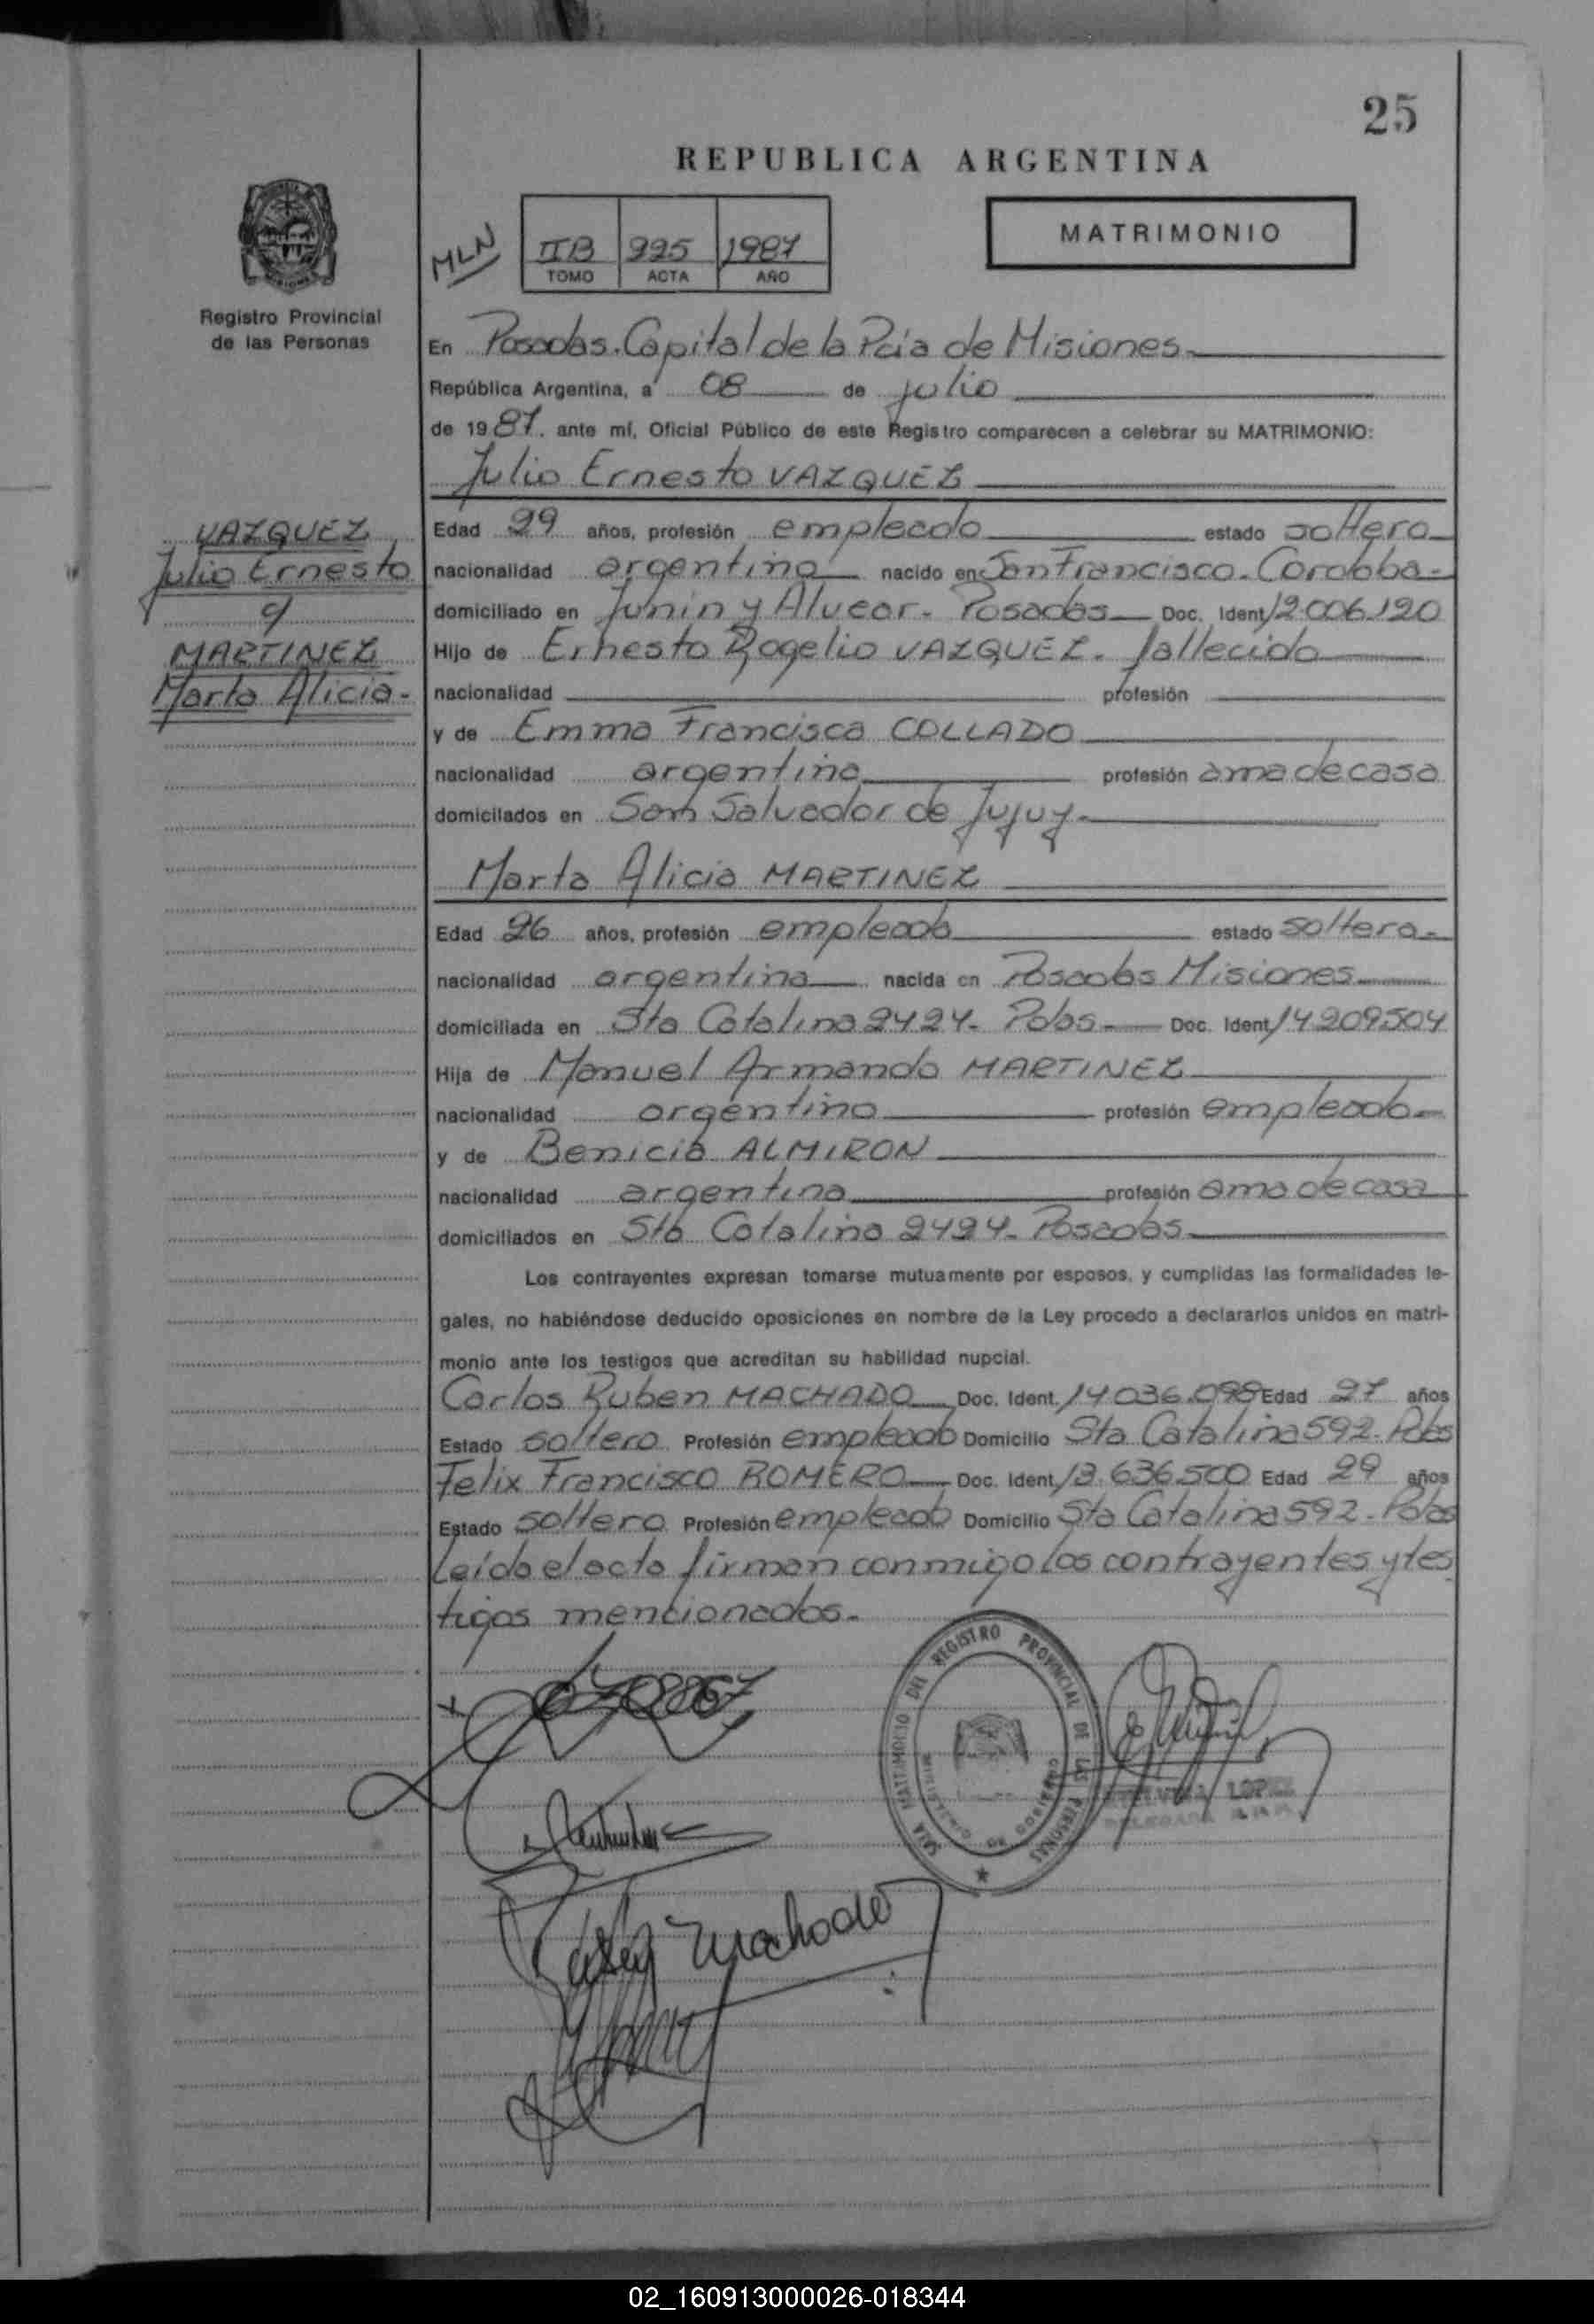 25
REPUBLICA ARGENTINA
MLN
IIB 225 1987
TOMO ACTA AÑO
MATRIMONIO
Registro Provincial
de las Personas
En Posadas. Capital de la Pcia de Misiones.
República Argentina, a 08 de julio
de 1987. ante mí, Oficial Público de este Registro comparecen a celebrar su MATRIMONIO:
Julio Ernesto VAZQUEZ
VAZQUEZ
Julio Ernesto
c/
MARTINEZ
Marta Alicia.-
Edad 29 años, profesión empleado estado soltero
nacionalidad argentina nacido en San Francisco. Cordoba-
domiciliado en Junin y Alvear. Posadas Doc. Ident 12.006.120
Hijo de Ernesto Rogelio VAZQUEZ. fallecido
nacionalidad profesión
y de Emma Francisca COLLADO
nacionalidad argentina profesión ama de casa
domiciliados en San Salvador de Jujuy.-
Marta Alicia MARTINEZ
Edad 26 años, profesión empleada estado soltera.-
nacionalidad argentina nacida en Posadas Misiones
domiciliada en Sta Catalina 2424. Pdas.- Doc. Ident 14209504
Hija de Manuel Armando MARTINEZ
nacionalidad argentino profesión empleado
y de Benicia ALMIRON
nacionalidad argentina profesión ama de casa
domiciliados en Sta Catalina 2424. Posadas
Los contrayentes expresan tomarse mutuamente por esposos, y cumplidas las formalidades le-
gales, no habiéndose deducido oposiciones en nombre de la Ley procedo a declararlos unidos en matri-
monio ante los testigos que acreditan su habilidad nupcial.
Carlos Ruben MACHADO Doc. Ident. 14036.098 Edad 27 años
Estado soltero Profesión empleado Domicilio Sta Catalina 592. Pdas
Felix Francisco ROMERO Doc. Ident 13.636.500 Edad 29 años
Estado soltero Profesión empleado Domicilio Sta Catalina 592. Pdas
Leída el acta firman conmigo los contrayentes y tes
tigos mencionados.-
SALA MATRIMONIO DEL REGISTRO PROVINCIAL DE LAS PERSONAS
LOPEZ
Machado
02_160913000026-018344